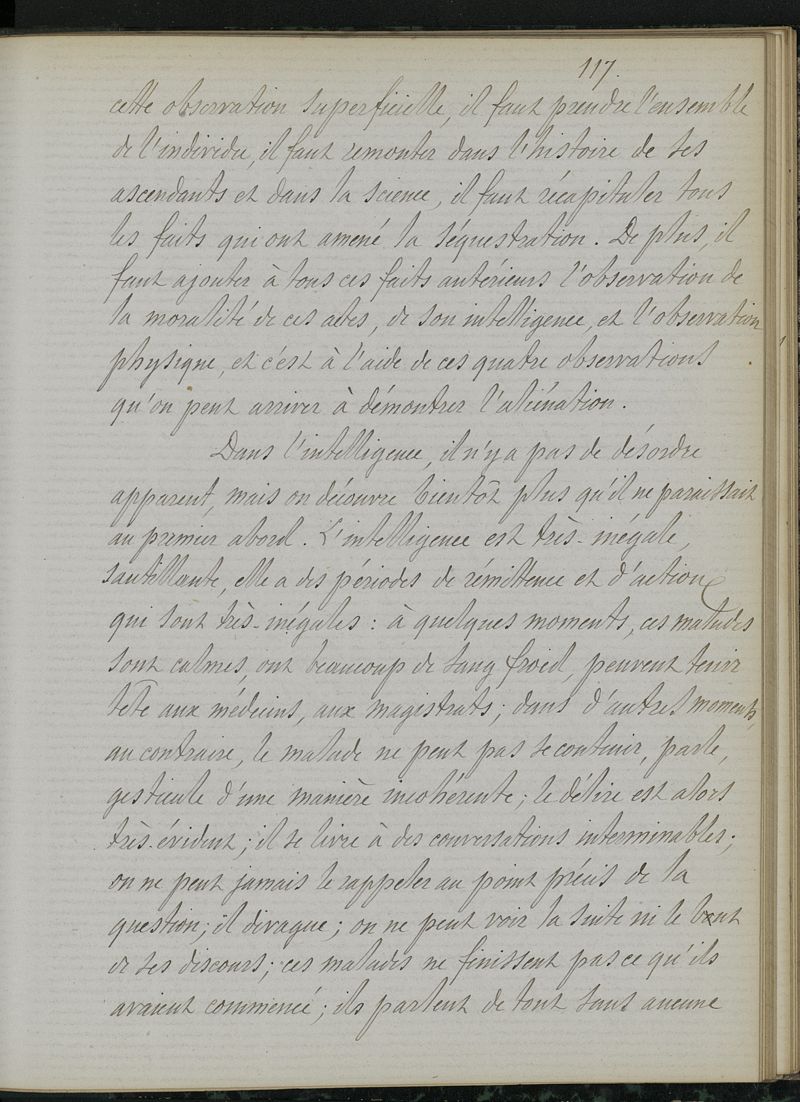 117.
cette observation superficielle, il faut prendre l'ensemble
de l'individu, il faut remonter dans l'histoire de ses
ascendants et dans la science, il faut récapituler tous
les faits qui ont amené la séquestration. De plus, il
faut ajouter à tous ces faits antérieurs l'observation de
la moralité de ces actes, de son intelligence, et l'observation
physique, et c'est à l'aide de ces quatre observations
qu'on peut arriver à démontrer l'aliénation.
Dans l'intelligence, il n'y a pas de désordre
apparent, mais on découvre bientôt plus qu'il ne paraissait
au premier abord. L'intelligence est très-inégale,
sautillante, elle a des périodes de rémittence et d'action
qui sont très-inégales : à quelques moments, ces malades
sont calmes, ont beaucoup de sang froid, peuvent tenir
tête aux médecins, aux magistrats ; dans d'autres moments,
au contraire, le malade ne peut pas se contenir, parle,
gesticule d'une manière incohérente ; le délire est alors
très-évident ; il se livre à des conversations interminables ;
on ne peut jamais le rappeler au point précis de la
question ; il divague ; on ne peut voir la suite ni le bout
de ses discours ; ces malades ne finissent pas ce qu'ils
avaient commencé ; ils parlent de tout sans aucune